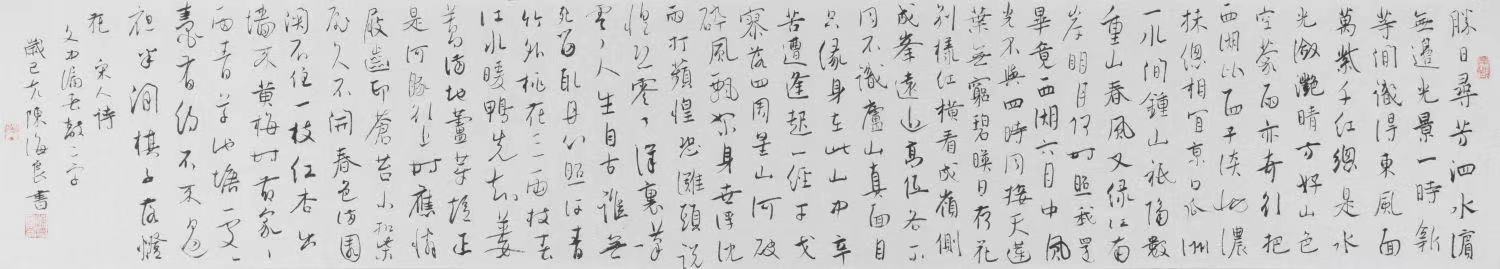 勝日尋芳泗水濱
無邊光景一時新
等閒識得東風面
萬紫千紅總是水
光瀲灩晴方好山色
空蒙雨亦奇引把
西湖比西子淡妝濃
抹總相宜京口瓜洲
一水間鍾山祇隔數
重山春風又綠江南
岸明月何時照我還
畢竟西湖六月中風
光不與四時同接天蓮
葉無窮碧映日荷花
別樣紅橫看成嶺側
成峯遠近高低各不
同不識廬山真面目
只緣身在此山中辛
苦遭逢起一經干戈
寥落四周星山河破
碎風飄絮身世浮沈
雨打蘋惶恐灘頭說
惶恐零丁洋裏嘆
零丁人生自古誰無
死留取丹心照汗青
竹外桃花三兩枝春
江水暖鴨先知蔞
蒿滿地蘆芽短正
是河豚欲上時應憐
屐齒印蒼苔小扣柴
扉久不開春色滿園
關不住一枝紅杏出
墻來黃梅時節家々
雨青草池塘處々
蛙有約不來過
夜半閒棋子落燈
花 宋人詩
文中漏去敲二字
歲己亥陳海良書